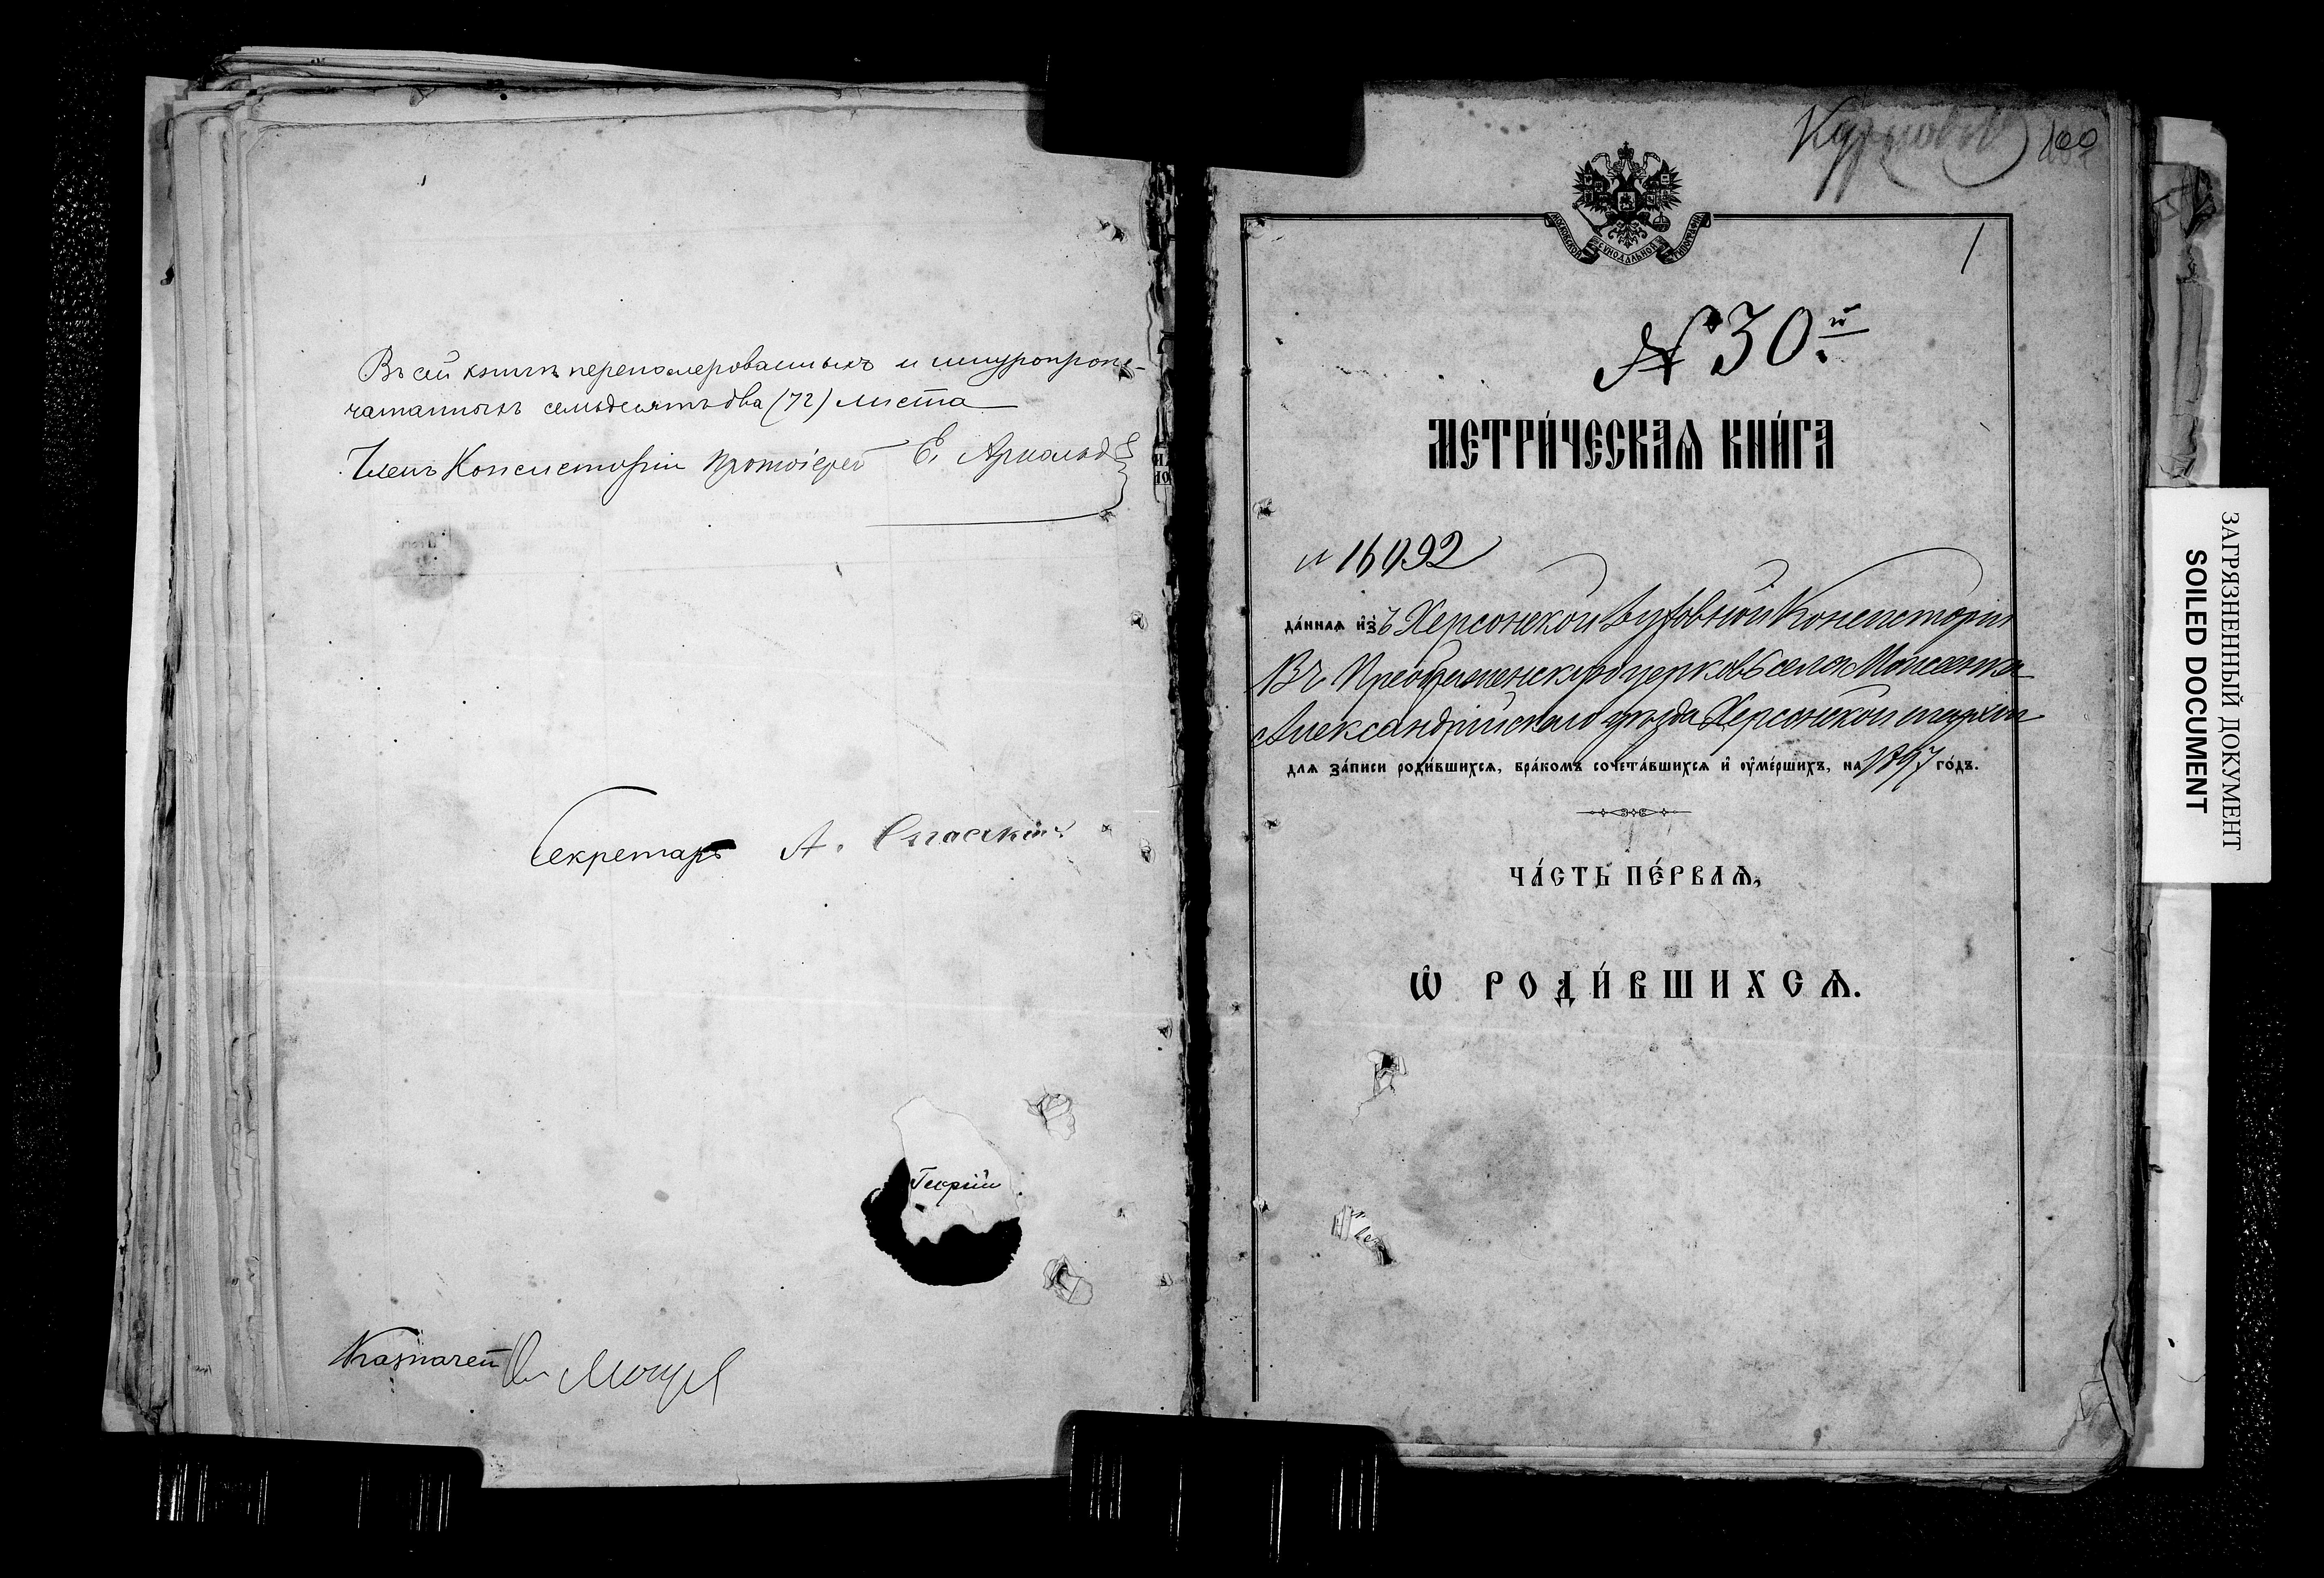 Въ сей книгѣ перенумерованныхъ и шнуропропе-
чатанныхъ семьдесятъ два (72) листа
Членъ Консисторіи Протоіерей Е. Арнольд
Секретарь А.
Георгій
Казначей
100
МОСКОВСКОЙ СѴНОДАЛЬНОЙ ТИПОГРАФІИ
1
№ 30.й
МЕТРИ́ЧЕСКАѦ КНИ́ГА
№ 16492
да́ннаѧ и҆зъ Херсонской Духовной Консисторіи
Въ Преображенскую церковь села
Александрійскаго уѣзда Херсонской епархіи
для за́писи роди́вшихсѧ, бра́комъ сочета́вшихсѧ и҆ ѹ҆ме́ршихъ, на 1897 го́дъ.
ЧА́СТЬ ПЕ́РВАѦ,
Ѡ҆ РОДИ́ВШИХСѦ.
ЗАГРЯЗНЕННЫЙ ДОКУМЕНТ
SOILED DOCUMENT